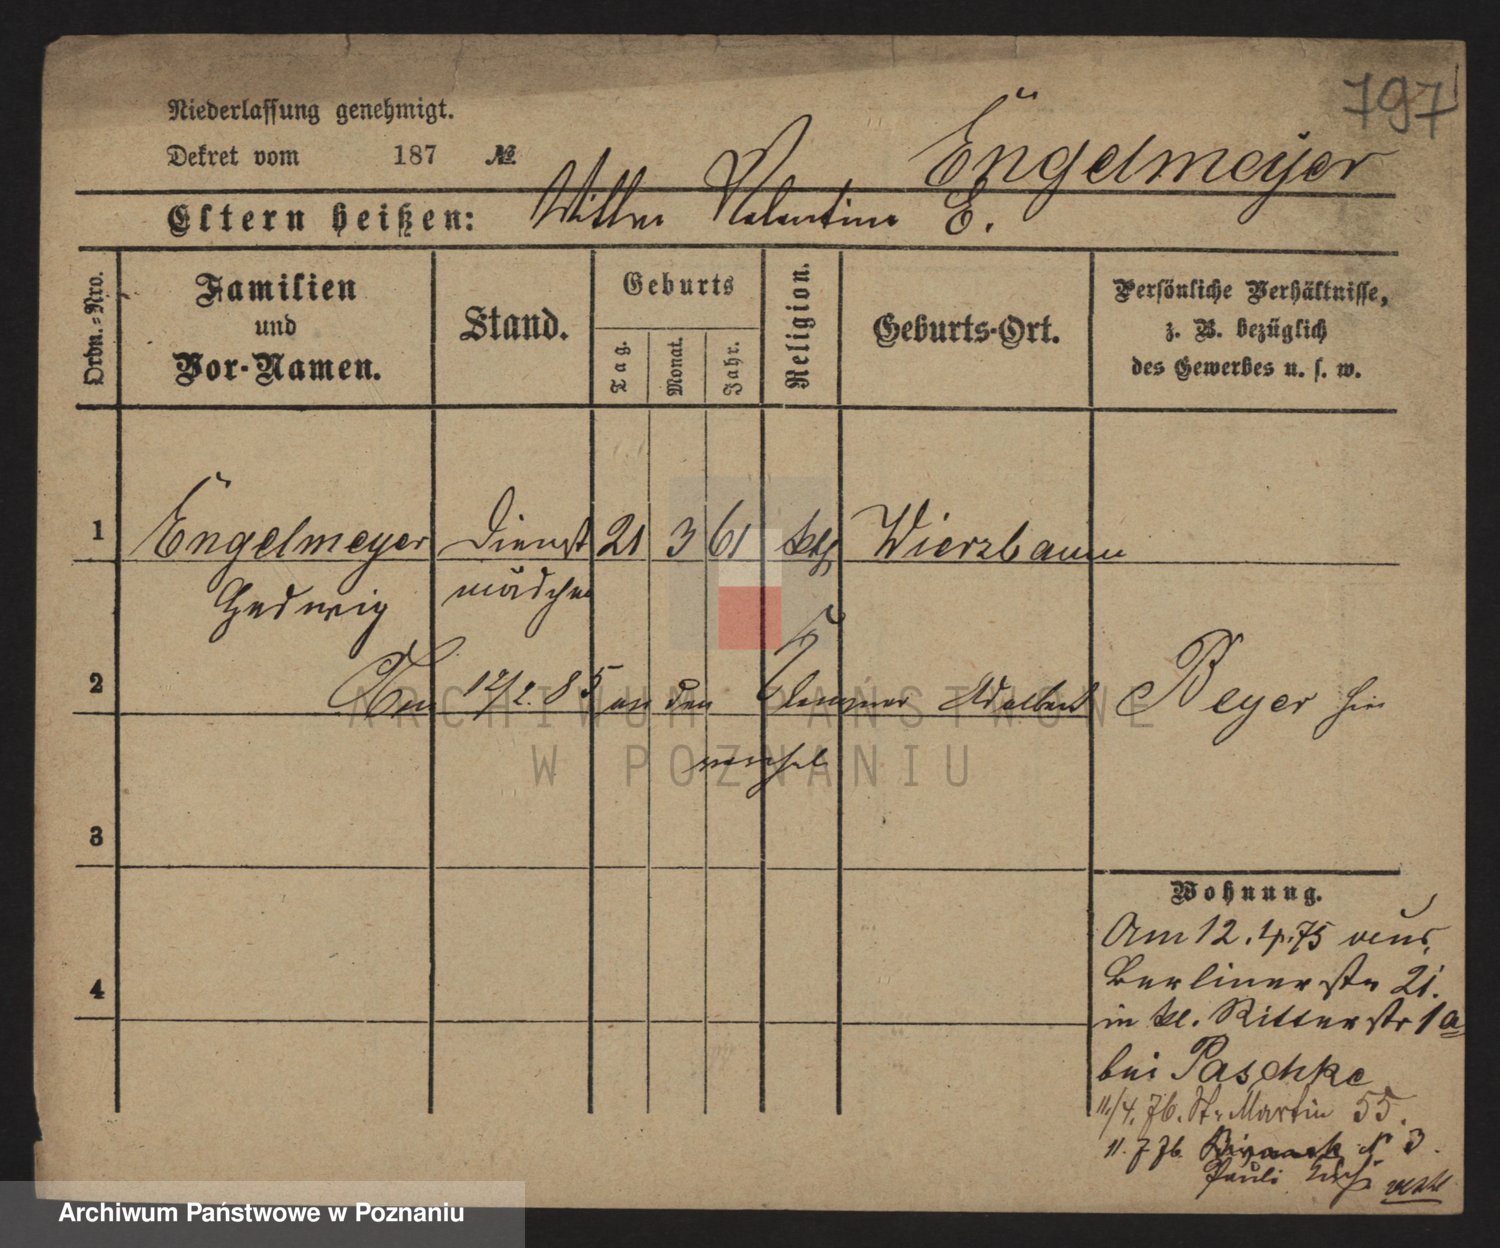 797
Niederlassung genehmigt.
Dekret vom 187 №
Engelmeyer
Eltern heißen: Valentin E.
Ordn.-Nro.
Familien und Vor-Namen.
Stand.
Geburts
Tag.
Monat.
Jahr.
Religion.
Geburts-Ort.
Persönliche Verhältnisse,
z. B. bezüglich
des Gewerbes u. s. w.
1 Engelmeyer Dienst 21 3 61 kth Wierzbaum
Hedwig mädchen
2 Am 12/2. 85 an den Adalbert Beyer hier
3
Wohnung.
Am 12.4.75 aus
Berlinerstr 21.
4
in kl. Ritterstr 1a
bei Paschke
11/4. 76. St. Martin 55.
11. 7 76 3.
Pauli
ARCHIWUM PAŃSTWOWE
W POZNANIU
Archiwum Państwowe w Poznaniu